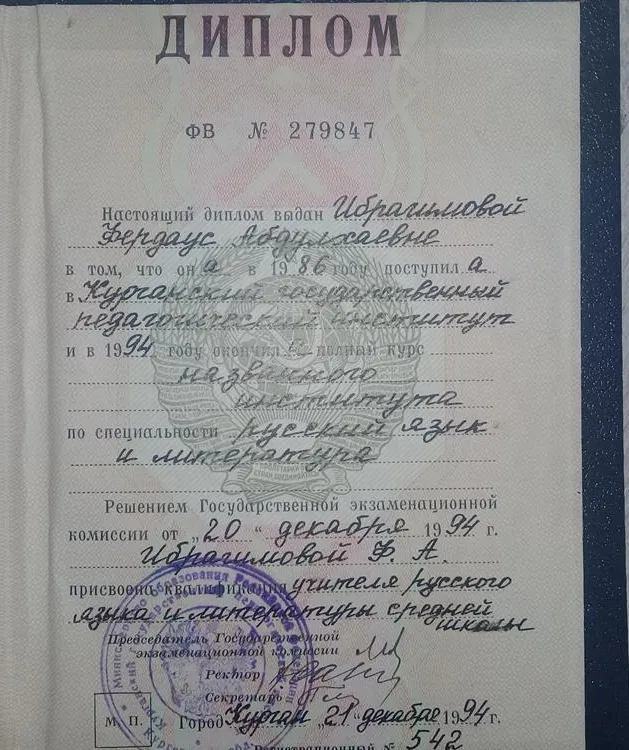 ДИПЛОМ
ФВ № 279847
Настоящий диплом выдан Ибрагимовой
Фердаус Абдулхаевне
в том, что он а в 1986 году поступил а
в Курганский государственный
педагогический институт
и в 1994 году окончил а полный курс
названного
института
по специальности русский язык
и литература
Решением Государственной экзаменационной
комиссии от „20“ декабря 1994 г.
Ибрагимовой Ф. А.
присвоена квалификация учителя русского
языка и литературы средней
школы
Председатель Государственной
экзаменационной комиссии
Ректор
Секретарь
М. П.
Город Курган, 21 декабря 1994 г.
Регистрационный № 542